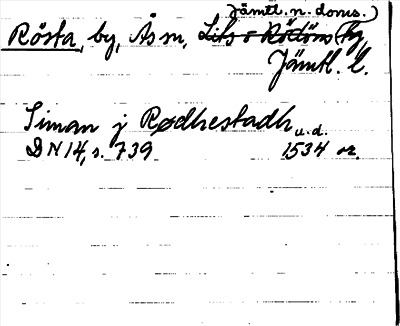 Jämtl. n. doms.)
Rösta, by, Ås sn, Lits o Rödöns (tg,
Jämtl. l.
Siman j Rødhestadh u.d.
DN 14, s. 739 1534 or.